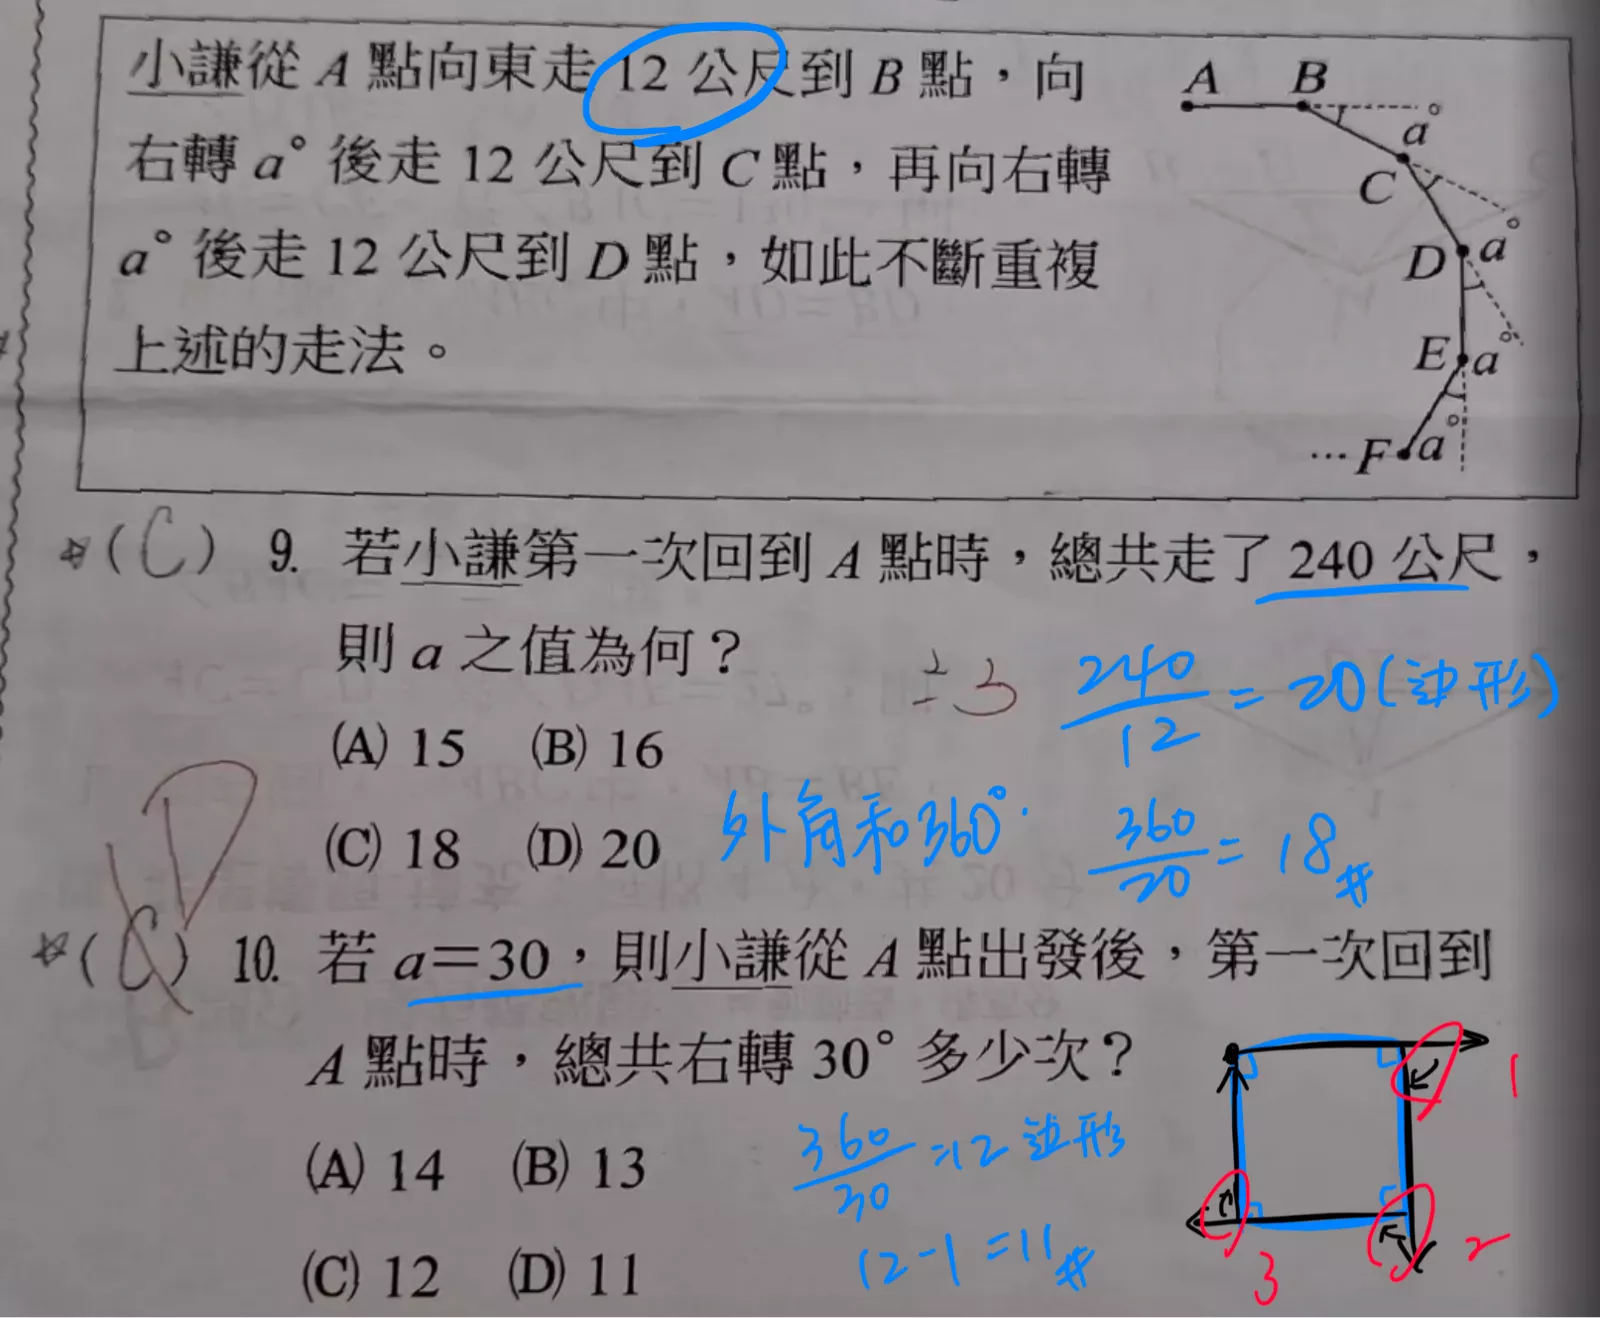 小謙從 A 點向東走 12 公尺到 B 點，向
右轉 a° 後走 12 公尺到 C 點，再向右轉
a° 後走 12 公尺到 D 點，如此不斷重複
上述的走法。
A B
a°
C
D a°
E a°
… F a°
(C) 9. 若小謙第一次回到 A 點時，總共走了 240 公尺，
則 a 之值為何？
(A) 15 (B) 16
(C) 18 (D) 20
240/12 = 20(边形)
外角和360°.
360/20 = 18#
D
(C) 10. 若 a＝30，則小謙從 A 點出發後，第一次回到
A 點時，總共右轉 30° 多少次？
(A) 14 (B) 13
(C) 12 (D) 11
360/30 =12 边形
12-1=11#
1
2
3